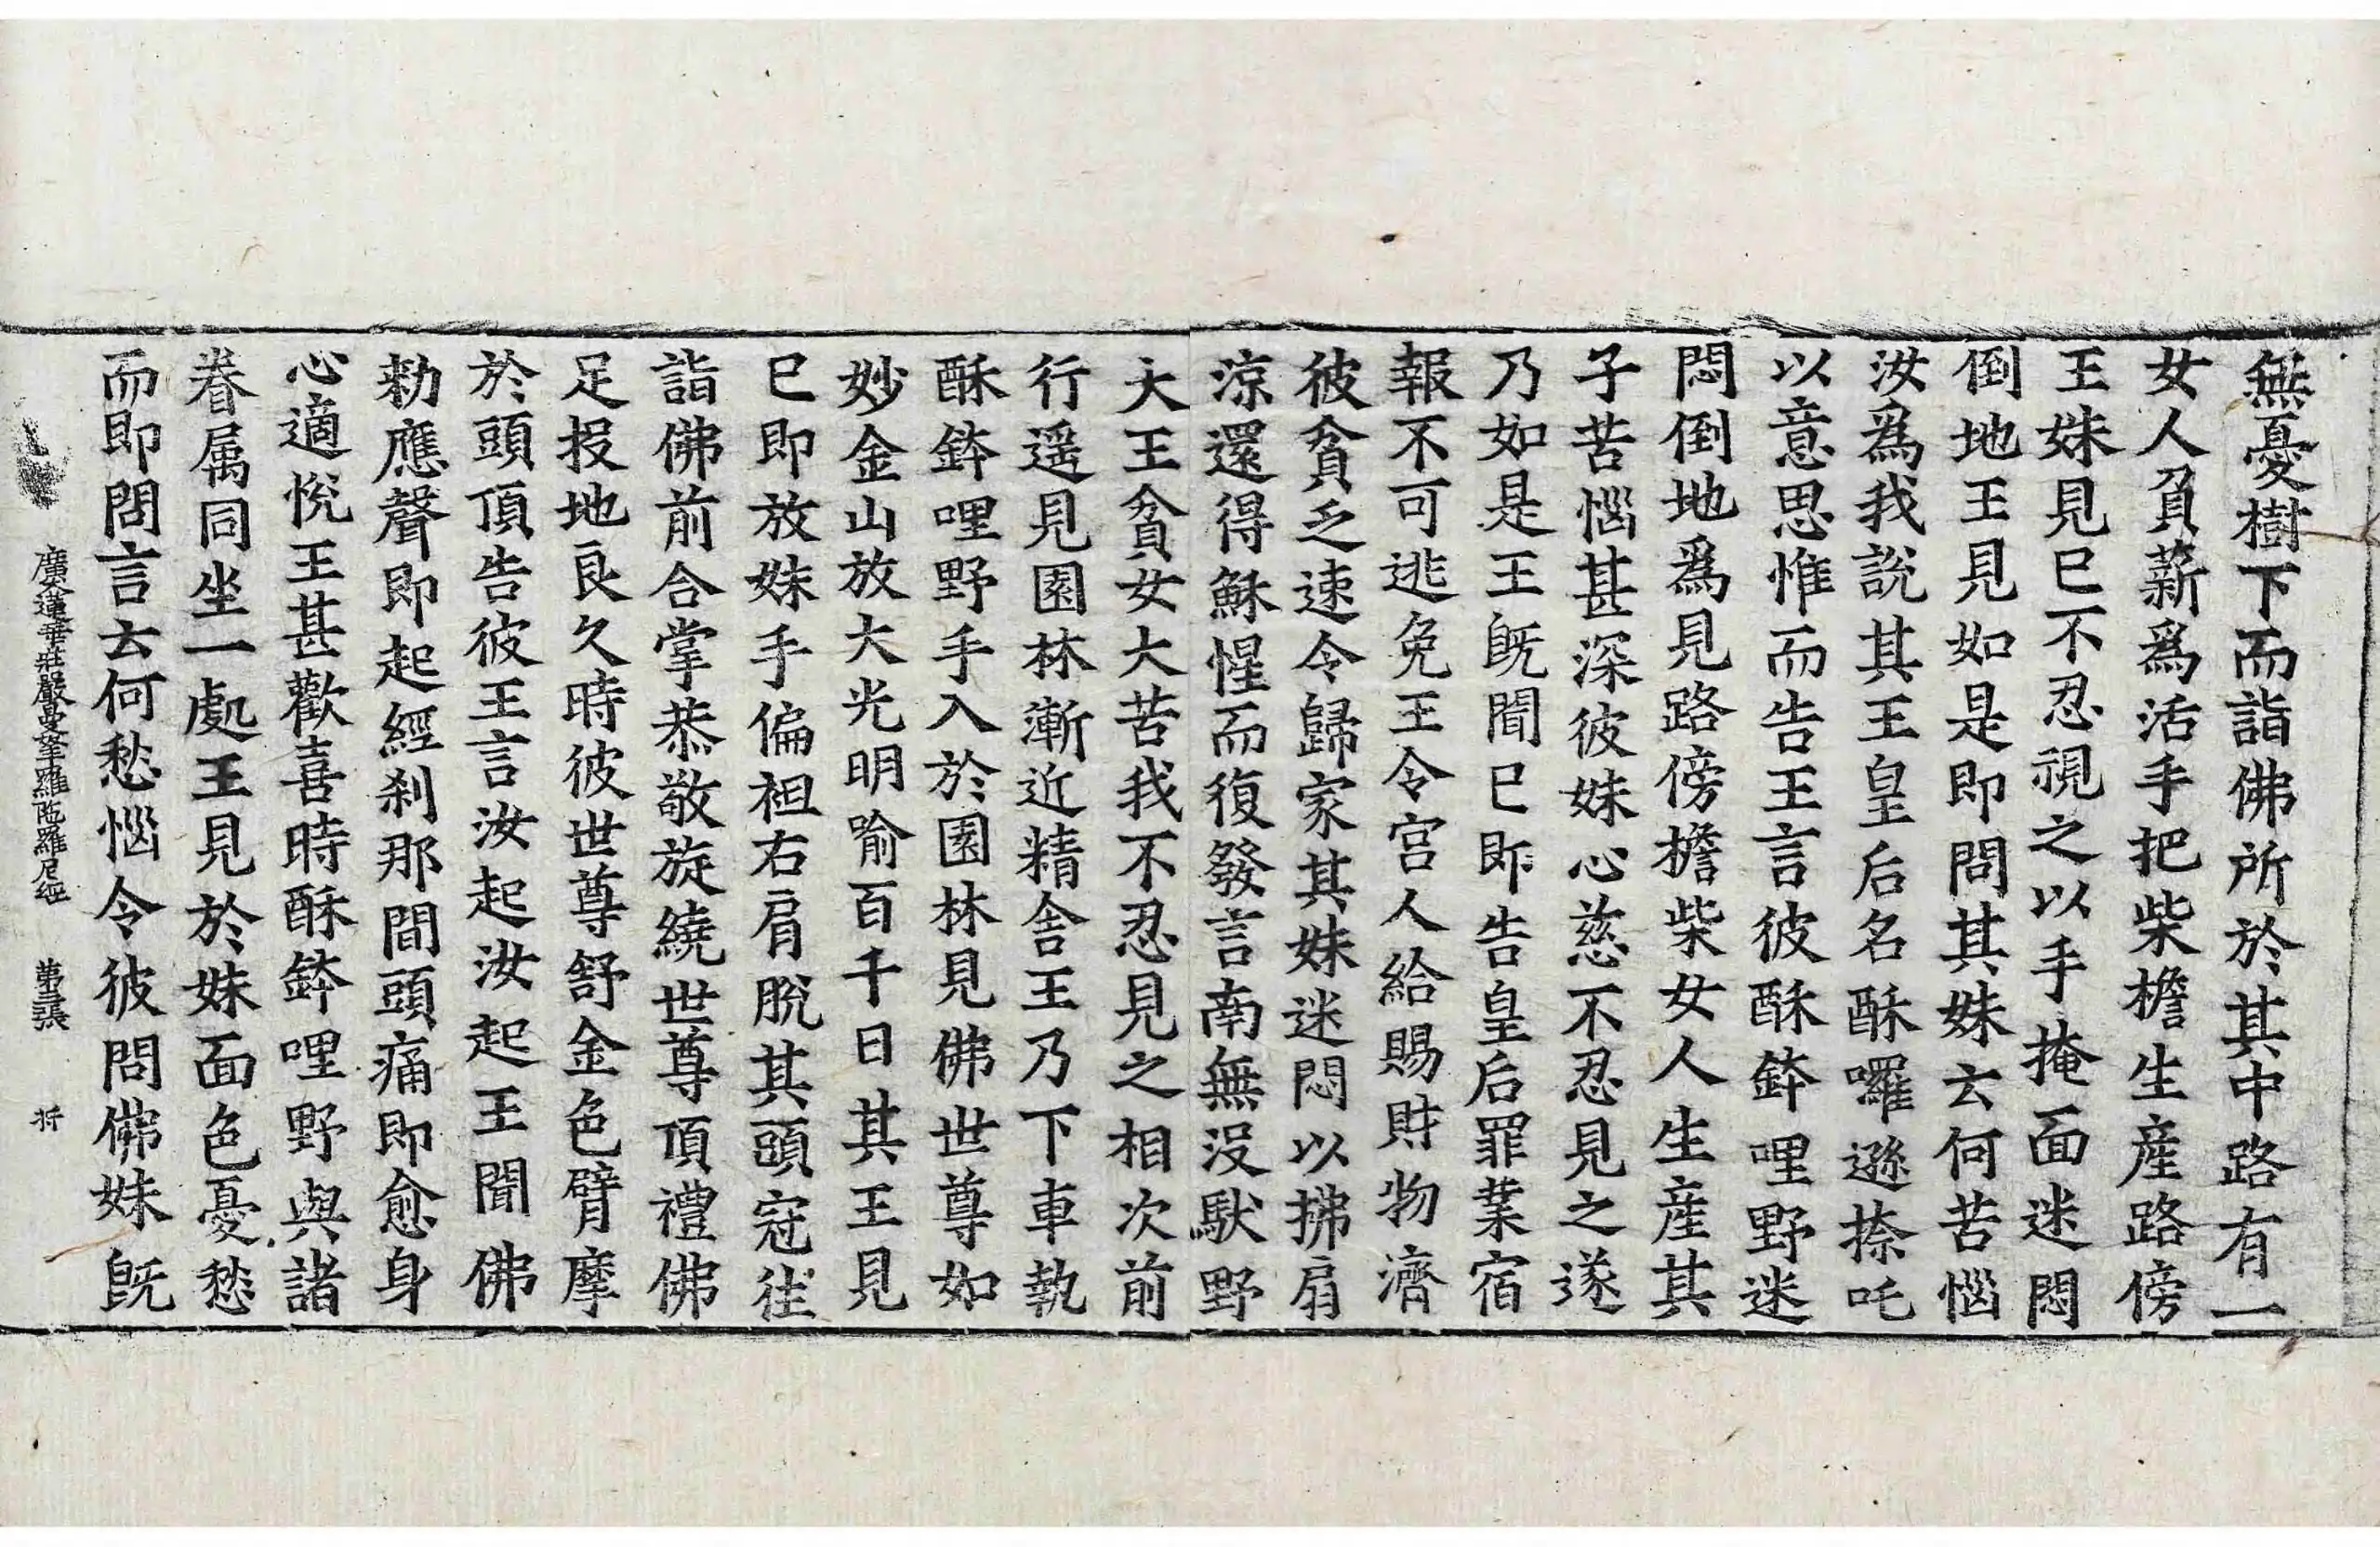 無憂樹下而詣佛所於其中路有一
女人負薪爲活手把柴檐生産路傍
王妹見已不忍視之以手掩面迷悶
倒地王見如是即問其妹云何苦惱
汝爲我說其王皇后名酥囉遜捺吒
以意思惟而告王言彼酥鉢哩野迷
悶倒地爲見路傍檐柴女人生産其
子苦惱甚深彼妹心慈不忍見之遂
乃如是王旣聞已即告皇后罪業宿
報不可逃免王令宫人給賜財物濟
彼貧乏速令歸家其妹迷悶以拂扇
涼還得穌惺而復發言南無没馱野
大王貧女大苦我不忍見之相次前
行遥見園林漸近精舍王乃下車執
酥鉢哩野手入於園林見佛世尊如
妙金山放大光明喻百千日其王見
已即放妹手偏袒右肩脫其頭冠徃
詣佛前合掌恭敬旋繞世尊頂禮佛
足投地良久時彼世尊舒金色臂摩
於頭頂告彼王言汝起汝起王聞佛
勑應聲即起經刹那間頭痛即愈身
心適悅王甚歡喜時酥鉢哩野與諸
眷属同坐一處王見於妹面色憂愁
而即問言云何愁惱令彼問佛妹旣
廣大蓮華莊嚴曼拏羅陁羅尼經 第三張 将